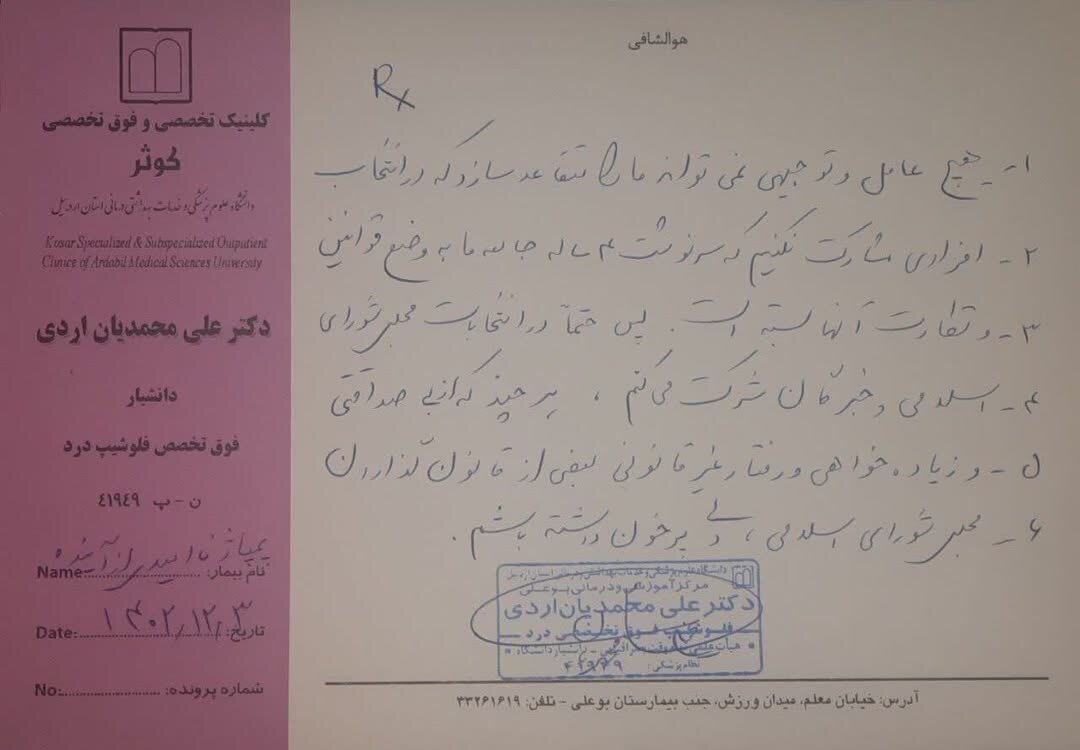 هوالشافی
Rx
۱ـ هیچ عامل و توجیهی نمی تواند ما را متقاعد سازد که در انتخاب
۲ـ افرادی مشارکت نکنیم که سرنوشت ۴ ساله جامعه ما به وضع قوانین
۳ـ و نظارت آنها بسته است. پس حتماً در انتخابات مجلس شورای
۴ـ اسلامی و خبرگان شرکت می کنم ، هر چند که از بی صداقتی
۵ـ و زیاده خواهی و رفتار غیر قانونی بعضی از قانون گذاران
۶ـ مجلس شورای اسلامی ، دلی پرخون داشته باشم.
کلینیک تخصصی و فوق تخصصی
کوثر
دانشگاه علوم پزشکی و خدمات بهداشتی درمانی استان اردبیل
Kosar Specialized & Subspecialized Outputient
Clinice of Ardabil Medical Sciences University
دکتر علی محمدیان اردی
دانشیار
فوق تخصص فلوشیپ درد
ن - پ ۴۱۹۴۹
نام بیمار: بیمار ناامیدی از آینده Name:
تاریخ: ۱۴۰۲/۱۲/۳ Date:
شماره پرونده: No:
دانشگاه علوم پزشکی و خدمات بهداشتی درمانی استان اردبیل
مرکز آموزشی و درمانی بوعلی
دکتر علی محمدیان اردی
فلوشیپ فوق تخصصی درد
هیأت علمی - دانشیار دانشگاه
نظام پزشکی: ۴۱۹۴۹
آدرس: خیابان معلم، میدان ورزش، جنب بیمارستان بوعلی - تلفن: ۳۳۲۶۱۶۱۹